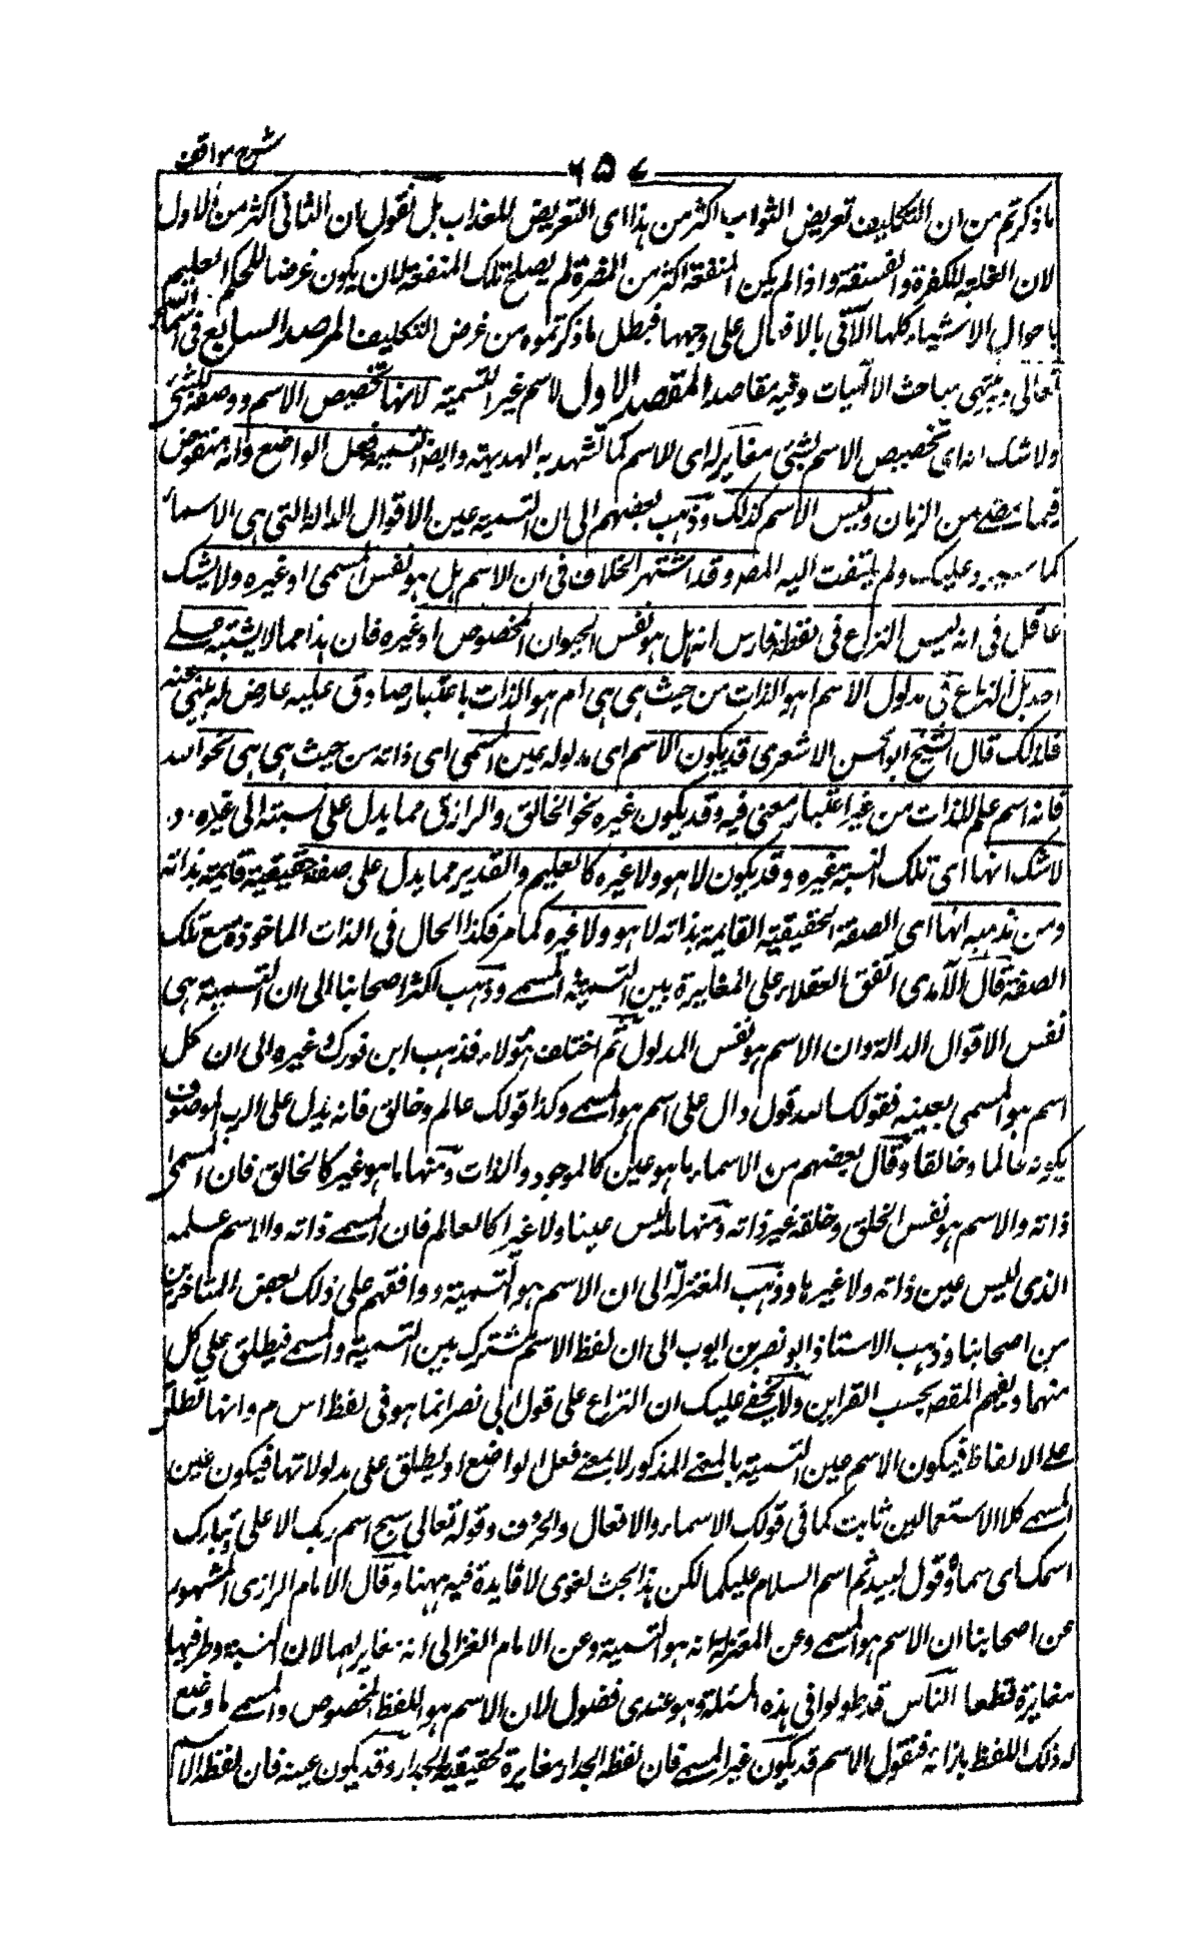 شرح مواقف
٦٥٧
ما ذكرتم من ان التكليف تعريض الثواب اكثر من هذا اى التعريض للعذاب بل نقول ان الثانى اكثر من الاول
لان الغلبة للكفرة والفسقة واذا لم يكن المنفعة اكثر من المضرة لم يصلح تلك المنفعة لان يكون غرضا للحكيم العليم
باحوال الاشياء كلها الآتى بالافعال على وجهها فبطل ما ذكرتموه من غرض التكليف المرصد السابع فى اسماء الله
تعالى وبه ينتهى مباحث الالهيات وفيه مقاصد المقصد الاول الاسم غير التسمية لانها تخصيص الاسم ووضعه للشئ
ولا شك انه اى تخصيص الاسم بشئ مغاير له اى للاسم كما تشهد به البديهة وايضا التسمية فعل الواضع وانه منقض
فيما مضى من الزمان وليس الاسم كذلك وذهب بعضهم الى ان التسمية عين الاقوال الدالة التى هى الاسماء
كما سيرد عليك ولم يلتفت اليه المصر وقد اشتهر الخلاف فى ان الاسم هل هو نفس المسمى او غيره ولا يشك
عاقل فى انه ليس النزاع فى لفظة فارس انه هل هو نفس الحيوان المخصوص او غيره فان هذا مما لا يشتبه على
احد بل النزاع فى مدلول الاسم اهو الذات من حيث هى هى ام هو الذات باعتبار صادق عليه عارض له ينبئ عنه
فلذلك قال الشيخ ابو الحسن الاشعرى قد يكون الاسم اى مدلوله عين المسمى اى ذاته من حيث هى هى نحو الله
فانه اسم علم للذات من غير اعتبار معنى فيه وقد يكون غيره نحو الخالق والرازق مما يدل على نسبته الى غيره و
لا شك انها اى تلك النسبة غيره وقد يكون لا هو ولا غيره كالعليم والقدير مما يدل على صفة حقيقية قايمة بذاته
ومن مذهبه انها اى الصفة الحقيقية القايمة بذاته لا هو ولا غيره كما مر فكذا الحال فى الذات الماخوذة مع تلك
الصفة قال الآمدى اتفق العقلاء على المغايرة بين التسمية والمسمى وذهب اكثر اصحابنا الى ان التسمية هى
نفس الاقوال الدالة وان الاسم هو نفس المدلول ثم اختلف هؤلاء فذهب ابن فورك وغيره الى ان كل
اسم هو المسمى بعينه فقولك الله قول دال على اسم هو المسمى وكذا قولك عالم وخالق فانه يدل على الرب الموصوف
بكونه عالما وخالقا وقال بعضهم من الاسماء ما هو عين كالموجود والذات ومنها ما هو غير كالخالق فان المسمى
ذاته والاسم هو نفس الخلق وخلقه غير ذاته ومنها ما ليس عينا ولا غيرا كالعالم فان المسمى ذاته والاسم علمه
الذى ليس عين ذاته ولا غيرها وذهب المعتزلة الى ان الاسم هو التسمية ووافقهم على ذلك بعض المتاخرين
من اصحابنا وذهب الاستاذ ابو نصر بن ايوب الى ان لفظ الاسم مشترك بين التسمية والمسمى فيطلق على كل
منهما ويفهم المقصر بحسب القراين ولا يخفى عليك ان النزاع على قول ابى نصر انما هو فى لفظ اس م وانها تطلق
على الالفاظ فيكون الاسم عين التسمية بالمعنى المذكور لا بمعنى فعل الواضع او يطلق على مدلولاتها فيكون عين
المسمى وكلا الاستعمالين ثابت كما فى قولك الاسماء والافعال والحروف وقوله تعالى سبح اسم ربك الاعلى وتبارك
اسمك اى مسماه وقول لبيد ثم اسم السلام عليكما لكن هذا بحث لغوى لا فايدة فيه ههنا وقال الامام الرازى المشهور
عن اصحابنا ان الاسم هو المسمى وعن المعتزلة انه هو التسمية وعن الامام الغزالى انه مغاير لهما لان النسبة وطرفيها
مغايرة قطعا والناس قد طولوا فى هذه المسئلة وهو عندى فضول لان الاسم هو اللفظ المخصوص والمسمى ما وضع
له ذلك اللفظ بازائه فنقول الاسم قد يكون غير المسمى فان لفظ الجدار مغايرة لحقيقة الجدار وقد يكون عينه فان لفظ الاسم